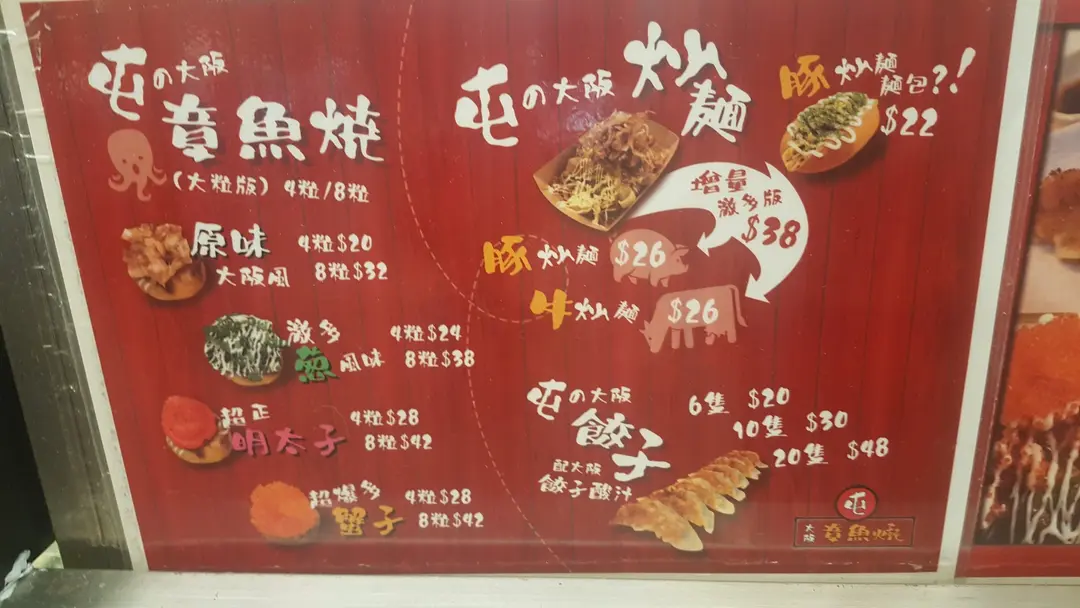 屯の大阪
章魚燒
(大粒版) 4粒/8粒
原味 4粒$20
大阪風 8粒$32
激多 4粒$24
葱風味 8粒$38
超正 4粒$28
明太子 8粒$42
超爆多 4粒$28
蟹子 8粒$42
屯の大阪 炒麵
豚炒麵
麵包?!
$22
增量
激多版
$38
豚炒麵 $26
牛炒麵 $26
屯の大阪
餃子
配大阪
餃子酸汁
6隻 $20
10隻 $30
20隻 $48
屯
大阪 章魚燒